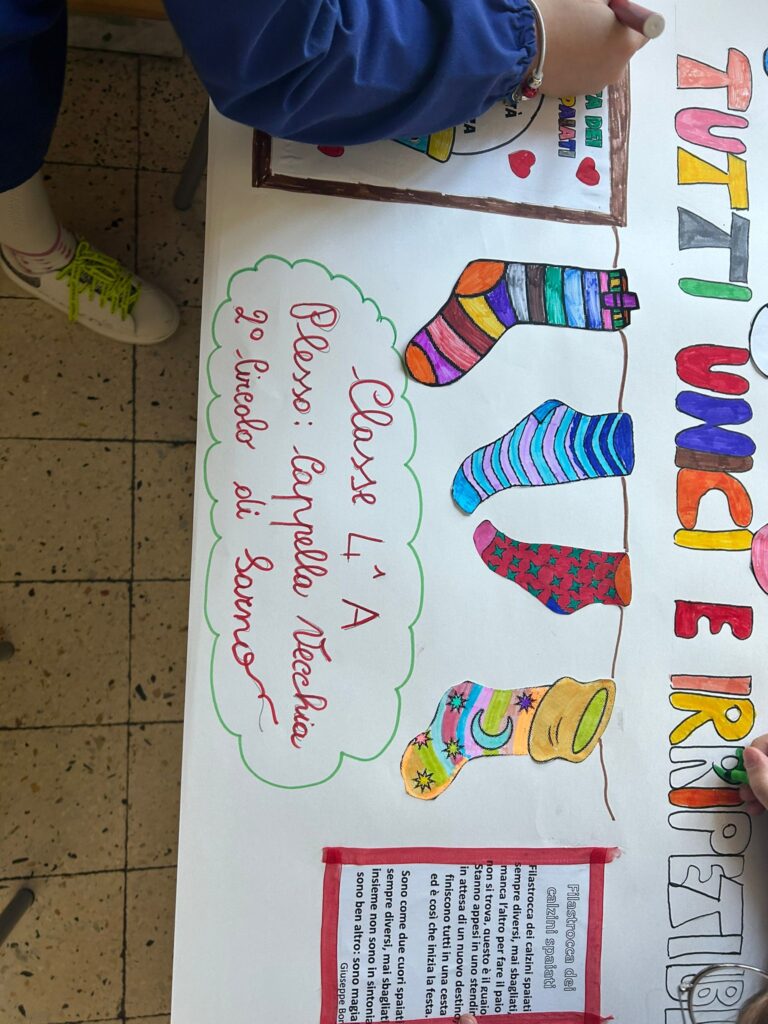 TUTTI UNICI E IRRIPETIBI
TA DEI
SPAIATI
Classe 4^ A
Plesso: Cappella Vecchia
2° Circolo di Sarno
Filastrocca dei
calzini spaiati
Filastrocca dei calzini spaiati
sempre diversi, mai sbagliati,
manca l'altro per fare il paio
non si trova, questo è il guaio
Stanno appesi in uno stendin
in attesa di un nuovo destino,
finiscono tutti in una cesta
ed è così che inizia la festa.
Sono come due cuori spaiati
sempre diversi, mai sbagliati
Insieme non sono in sintonia
sono ben altro: sono magia
Giuseppe Bor